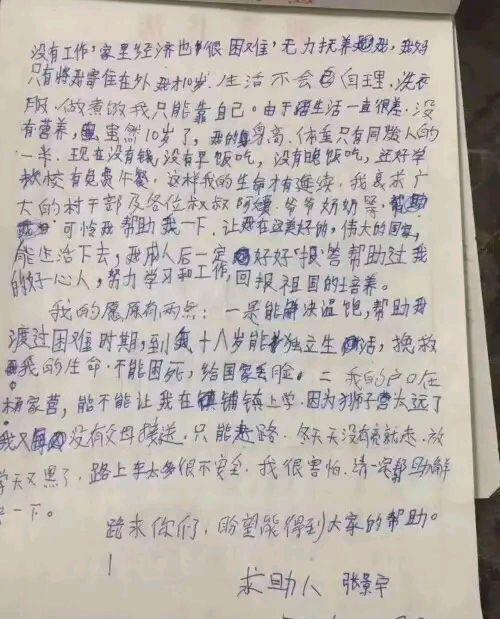 没有工作,家里经济也很困难,无力抚养我,我妈
只有将我寄住在外我才10岁.生活不会自理.洗衣
服.做煮饭我只能靠自己。由于生活一直很差.没
有营养,虽然10岁了,我的身高.体重只有同龄人的
一半.现在没有钱,没有早饭吃,没有晚饭吃,还好学
校有免费午餐,这样我的生命才有延续.我哀求广
大的村干部及各位叔叔阿姨.爷爷奶奶等,
可怜我帮助我一下.让我在这美好的,伟大的国家,
能生活下去,我成人后一定好好报答帮助过我
的好心人,努力学习和工作,回报祖国的培养。
我的愿原有两点:一是能解决温饱,帮助我
渡过困难时期,到我十八岁能独立生活,挽救
我的生命.不能困死,给国家丢脸。二我的户口在
杨家营,能不能让我在镇铺镇上学.因为狮子营太远了
我又没有父母接送.只能赶路.冬天天没有亮就走.放
学天又黑了,路上车太多很不安全.我很害怕.请一定帮助解
一下。
跪求你们,盼望能得到大家的帮助。
求助人 张景宇